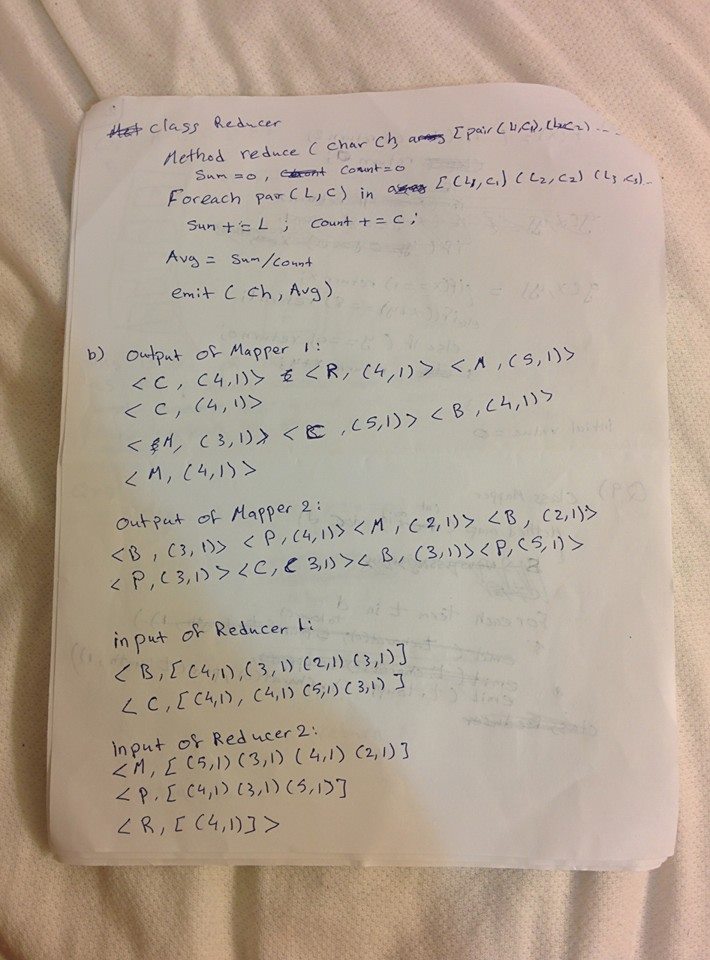 class Reducer
Method reduce ( char ch, [ pair (L1,C1), (L2C2) ...
Sum = 0, Count = 0
Foreach par (L, C) in [ (L1, C1) (L2, C2) (L3, C3)...
Sun += L ; Count += C ;
Avg = Sum/Count
emit ( Ch, Avg)
b) Output of Mapper 1:
< C, (4,1)> < R, (4,1)> < M, (5,1)>
< C, (4,1)>
< M, (3,1)> < C, (5,1)> < B, (4,1)>
< M, (4,1)>
Output of Mapper 2:
< B, (3,1)> < P, (4,1)> < M, (2,1)> < B, (2,1)>
< P, (3,1)> < C, ( 3,1)> < B, (3,1)> < P, (5,1)>
input of Reducer 1:
< B, [ (4,1), (3,1) (2,1) (3,1) ]
< C, [ (4,1), (4,1) (5,1) (3,1) ]
Input of Reducer 2:
< M, [ (5,1) (3,1) (4,1) (2,1) ]
< P, [ (4,1) (3,1) (5,1) ]
< R, [ (4,1) ] >